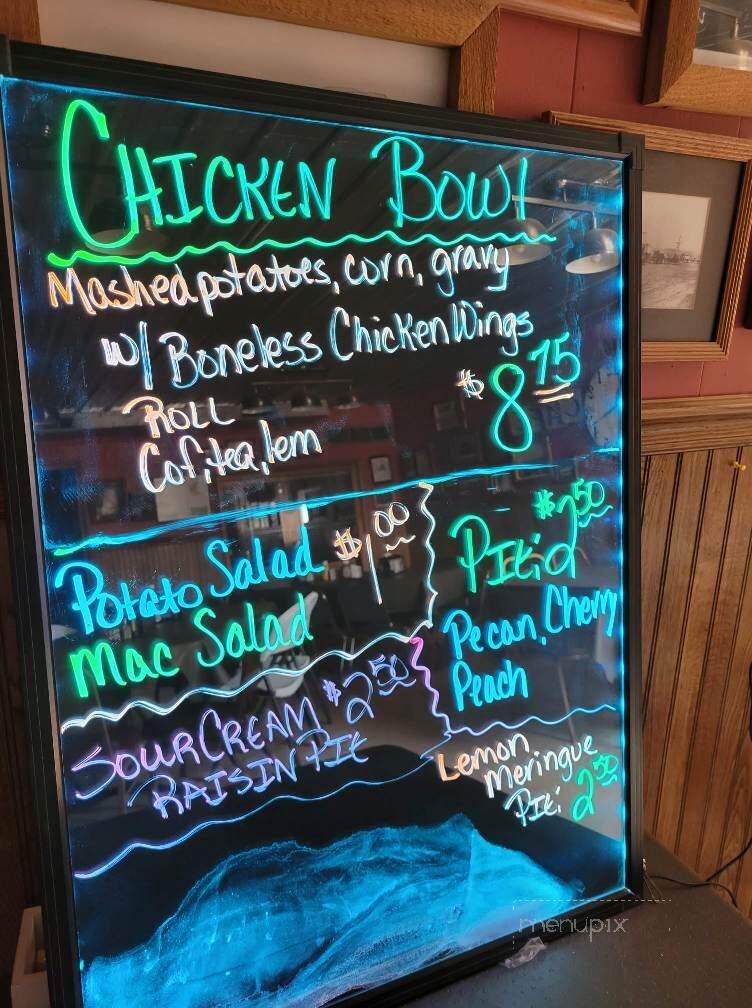 CHICKEN BOWl
Mashed potatoes, corn, gravy
w/ Boneless Chicken Wings
ROLL
Cof, tea, lem
$8 75
Potato Salad $1 00
Mac Salad
PIE: $2 50
Pecan, Cherry
Peach
SOUR CREAM $2 50
RAISIN PIE
Lemon
Meringue
PIE: 2 50
menupix